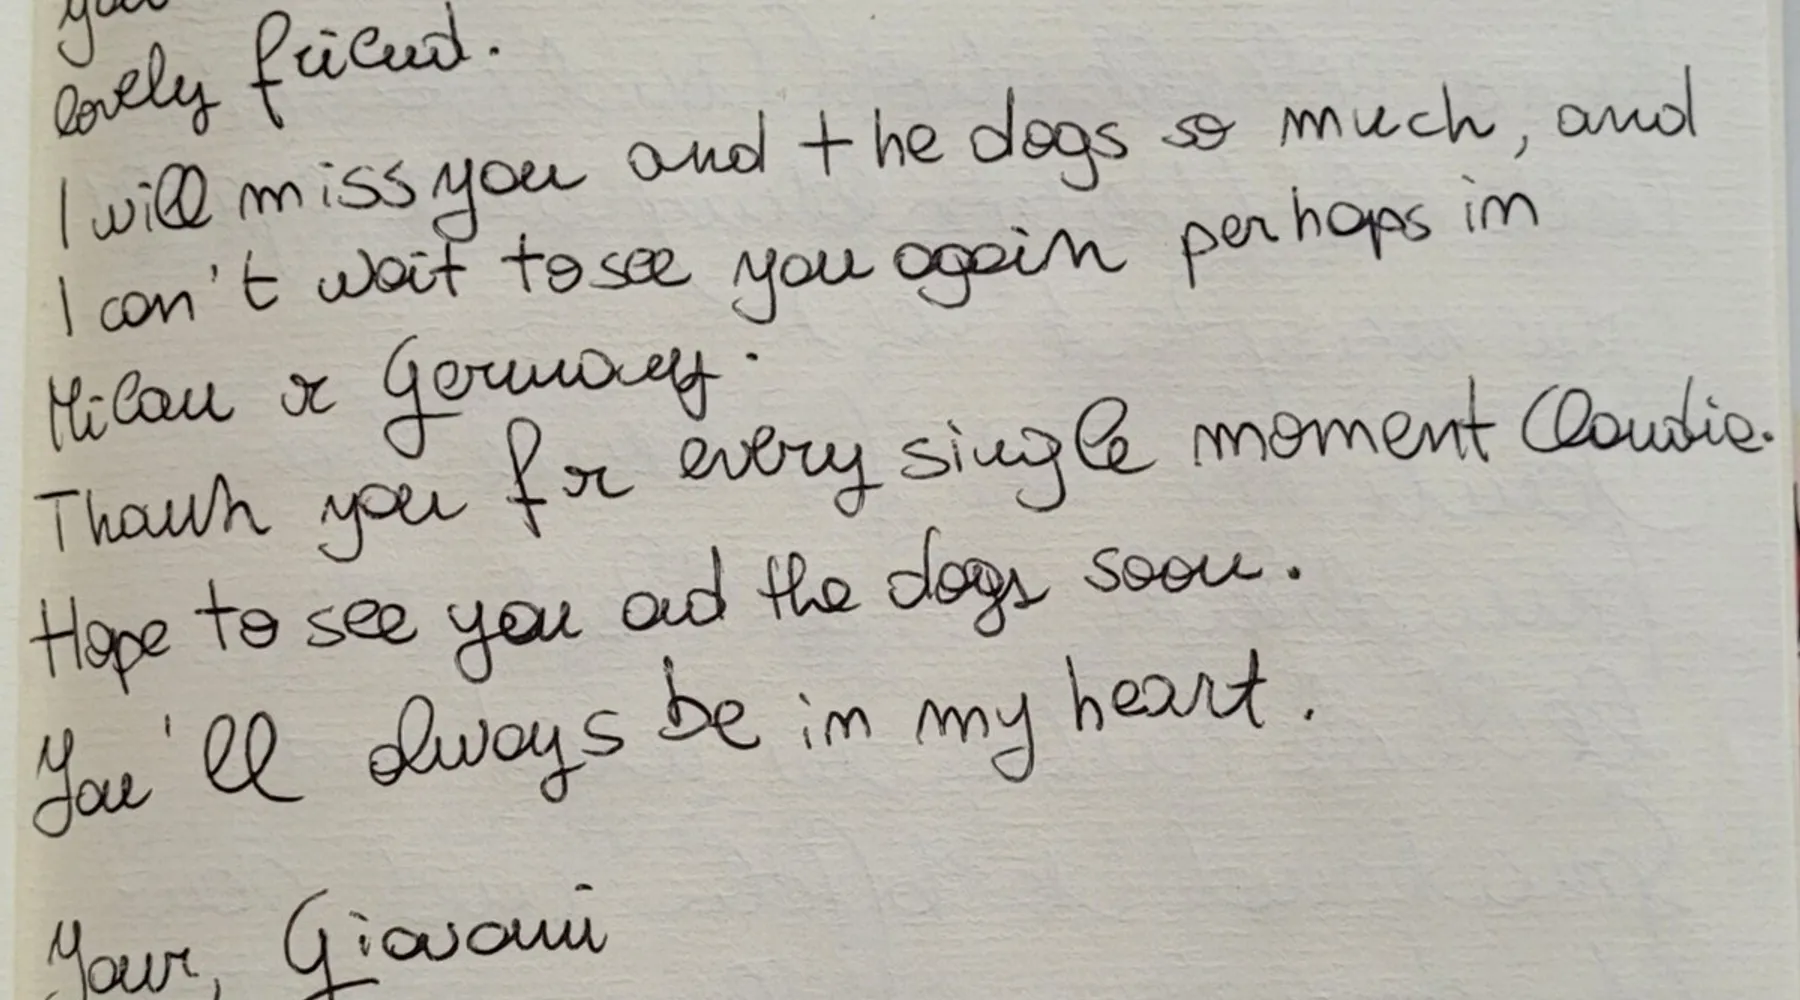 you
lovely friend.
I will miss you and the dogs so much, and
I can't wait to see you again perhaps in
Milan or Germany.
Thank you for every single moment Claudia.
Hope to see you and the dogs soon.
You'll always be in my heart.
Your, Giovanni